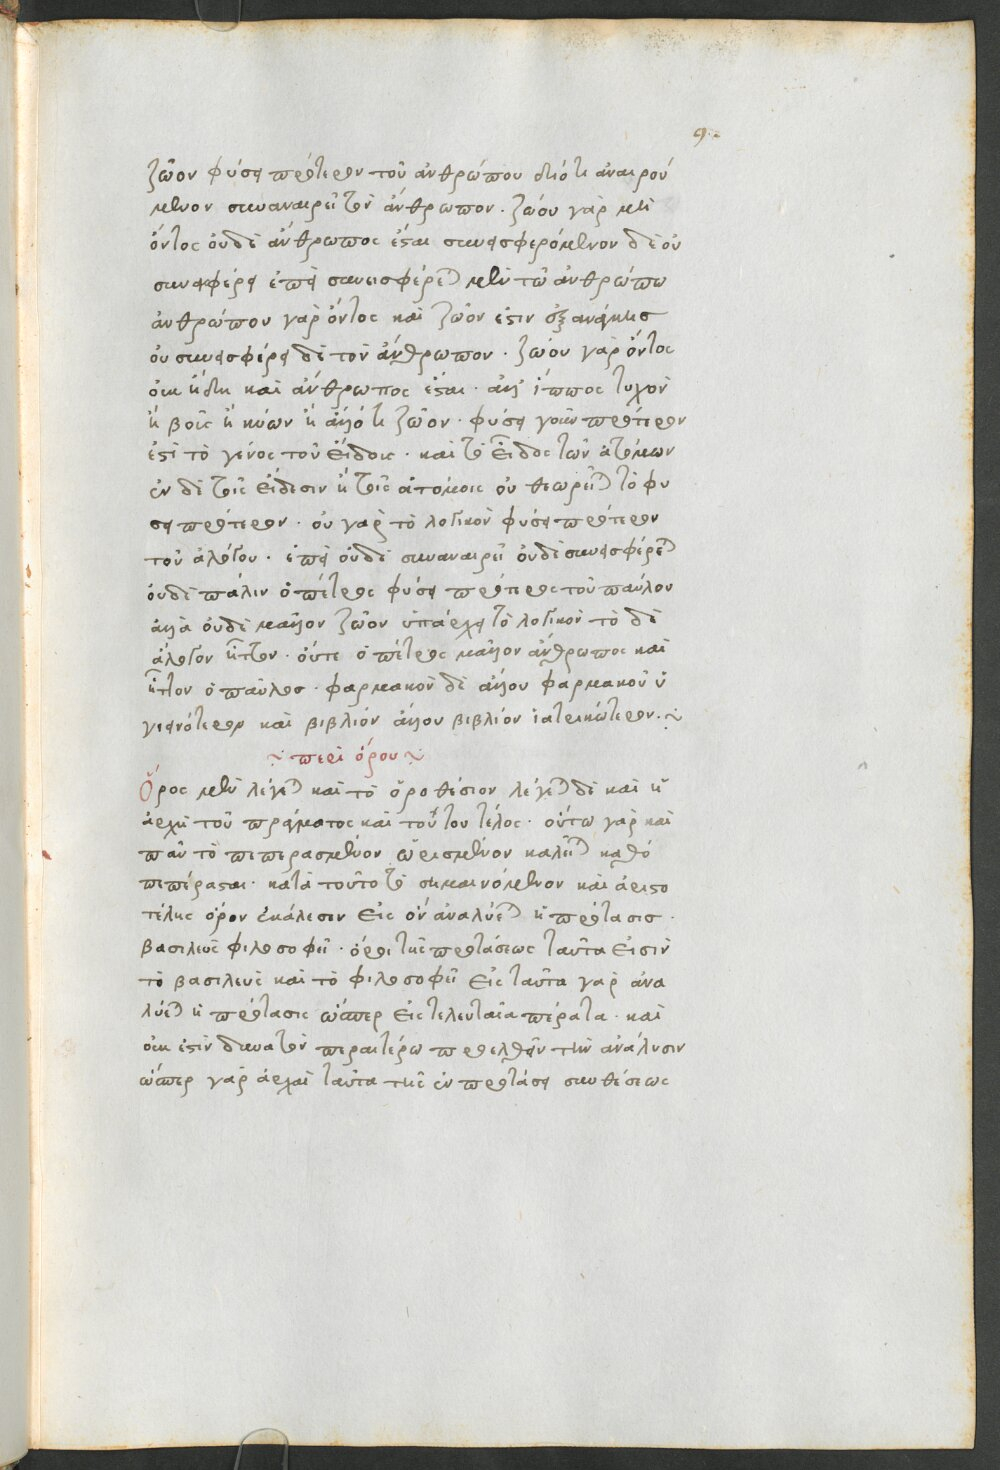 9.
ζῶον φύσει πρότερον τοῦ ἀνθρώπου διότι ἀναιρού
μενον συναναιρεῖ τὸν ἄνθρωπον. ζώου γὰρ μὴ
ὄντος οὐδὲ ἄνθρωπος ἔσται συνεισφερόμενον δὲ οὐ
συνεισφέρει ἐπεὶ συνεισφέρεται μὲν τῶ ἀνθρώπω
ἀνθρώπου γὰρ ὄντος καὶ ζῶον ἐστιν ἐξ ἀνάγκης
οὐ συνεισφέρει δὲ τὸν ἄνθρωπον. ζώου γὰρ ὄντος
οὐκ ἤδη καὶ ἄνθρωπος ἔσται. ἀλλ' ἵππος τυχὸν
ἢ βοῦς ἢ κύων ἢ ἄλλό τι ζῶον. φύσει γοῦν πρότερον
ἐστὶ τὸ γένος τοῦ εἴδους. καὶ τὸ εἶδος τῶν ἀτόμων
ἐν δὲ τοῖς εἴδεσιν ἢ τοῖς ἀτόμοις οὐ θεωρεῖται τὸ φύ
σει πρότερον. οὐ γὰρ τὸ λογικὸν φύσει πρότερον
τοῦ ἀλόγου. ἐπεὶ οὐδὲ συναναιρεῖ οὐδὲ συνεισφέρεται
οὐδὲ πάλιν ὁ πέτρος φύσει πρότερος τοῦ παύλου
ἀλλὰ οὐδὲ μᾶλλον ζῶον ὑπάρχει τὸ λογικὸν τὸ δὲ
ἄλογον ἧττον. οὔτε ὁ πέτρος μᾶλλον ἄνθρωπος καὶ
ἧττον ὁ παῦλος. φαρμακὸν δὲ ἄλλου φαρμακοῦ ὑ
γιεινότερον καὶ βιβλίον ἄλλου βιβλίον ἰατρικώτερον. ~
~ περὶ ὅρου ~
Ὅρος μὲν λέγεται καὶ τὸ ὁροθέσιον λέγεται δὲ καὶ ἡ
ἀρχὴ τοῦ πράγματος καὶ τούτου τέλος. οὕτω γὰρ καὶ
πᾶν τὸ πεπερασμένον ὡρισμένον καλεῖται καθό
πεπέρασται. κατὰ τοῦτο τὸ σημαινόμενον καὶ ἀριστο
τέλης ὅρον ἐκάλεσεν εἰς ὃν ἀναλύεται ἡ πρότασις.
βασιλεὺς φιλοσοφεῖ. ὅροι τῆς προτάσεως ταῦτα εἰσὶν
τὸ βασιλεὺς καὶ τὸ φιλοσοφεῖ εἰς ταῦτα γὰρ ἀνα
λύεται ἡ πρότασις ὥσπερ εἰς τελευταῖα πέρατα. καὶ
οὐκ ἐστὶν δυνατὸν περαιτέρω προελθεῖν τὴν ἀνάλυσιν
ὥσπερ γὰρ ἀρχαὶ ταῦτα τῆς ἐν προτάσει συνθέσεως